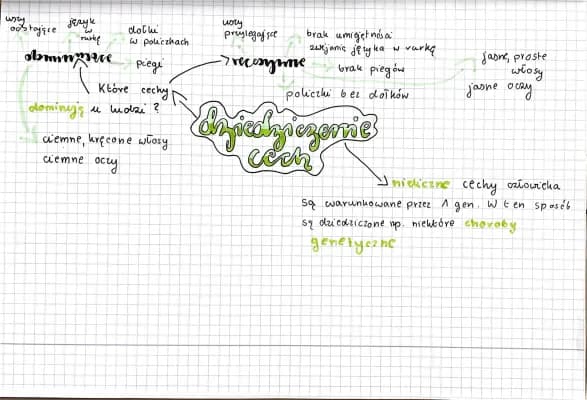 uszy
odstające
język
w
rurkę
dołki
w policzkach
dominujące
piegi
Które cechy
dominują u ludzi?
ciemne, kręcone włosy
ciemne oczy
uszy
przylegające
brak umiejętności
zwijania języka w rurkę
recesywne
brak piegów
policzki bez dołków
jasne, proste
włosy
jasne oczy
dziedziczenie
cech
nieliczne cechy człowieka
są warunkowane przez 1 gen. W ten sposób
są dziedziczone np. niektóre choroby
genetyczne